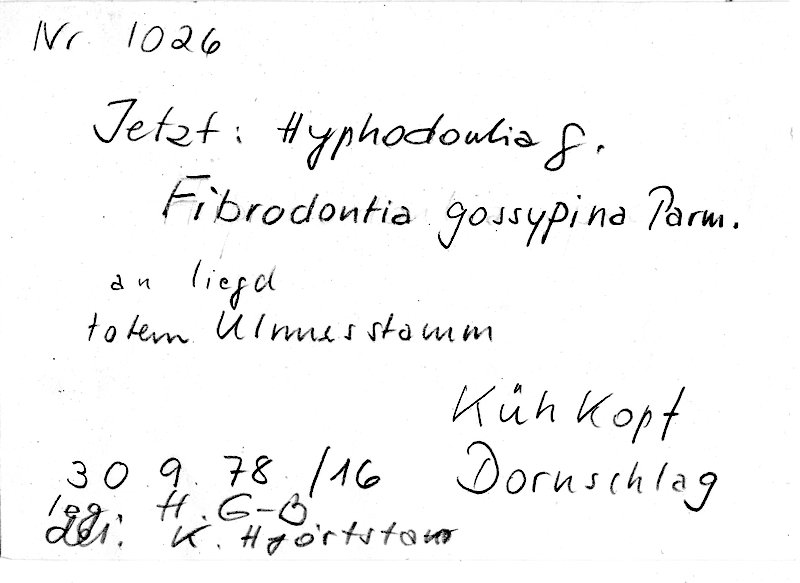 Nr. 1026
Jetzt: Hyphodontia g.
Fibrodontia gossypina Parm.
an liegd
totem Ulmusstamm
Kühkopf
30 9. 78 /16 Dornschlag
leg: H. G-B
det: K. Hjörtstam